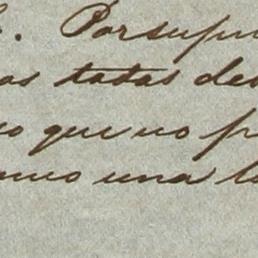 . Porsupu
os tadas des
o que no p
como una l